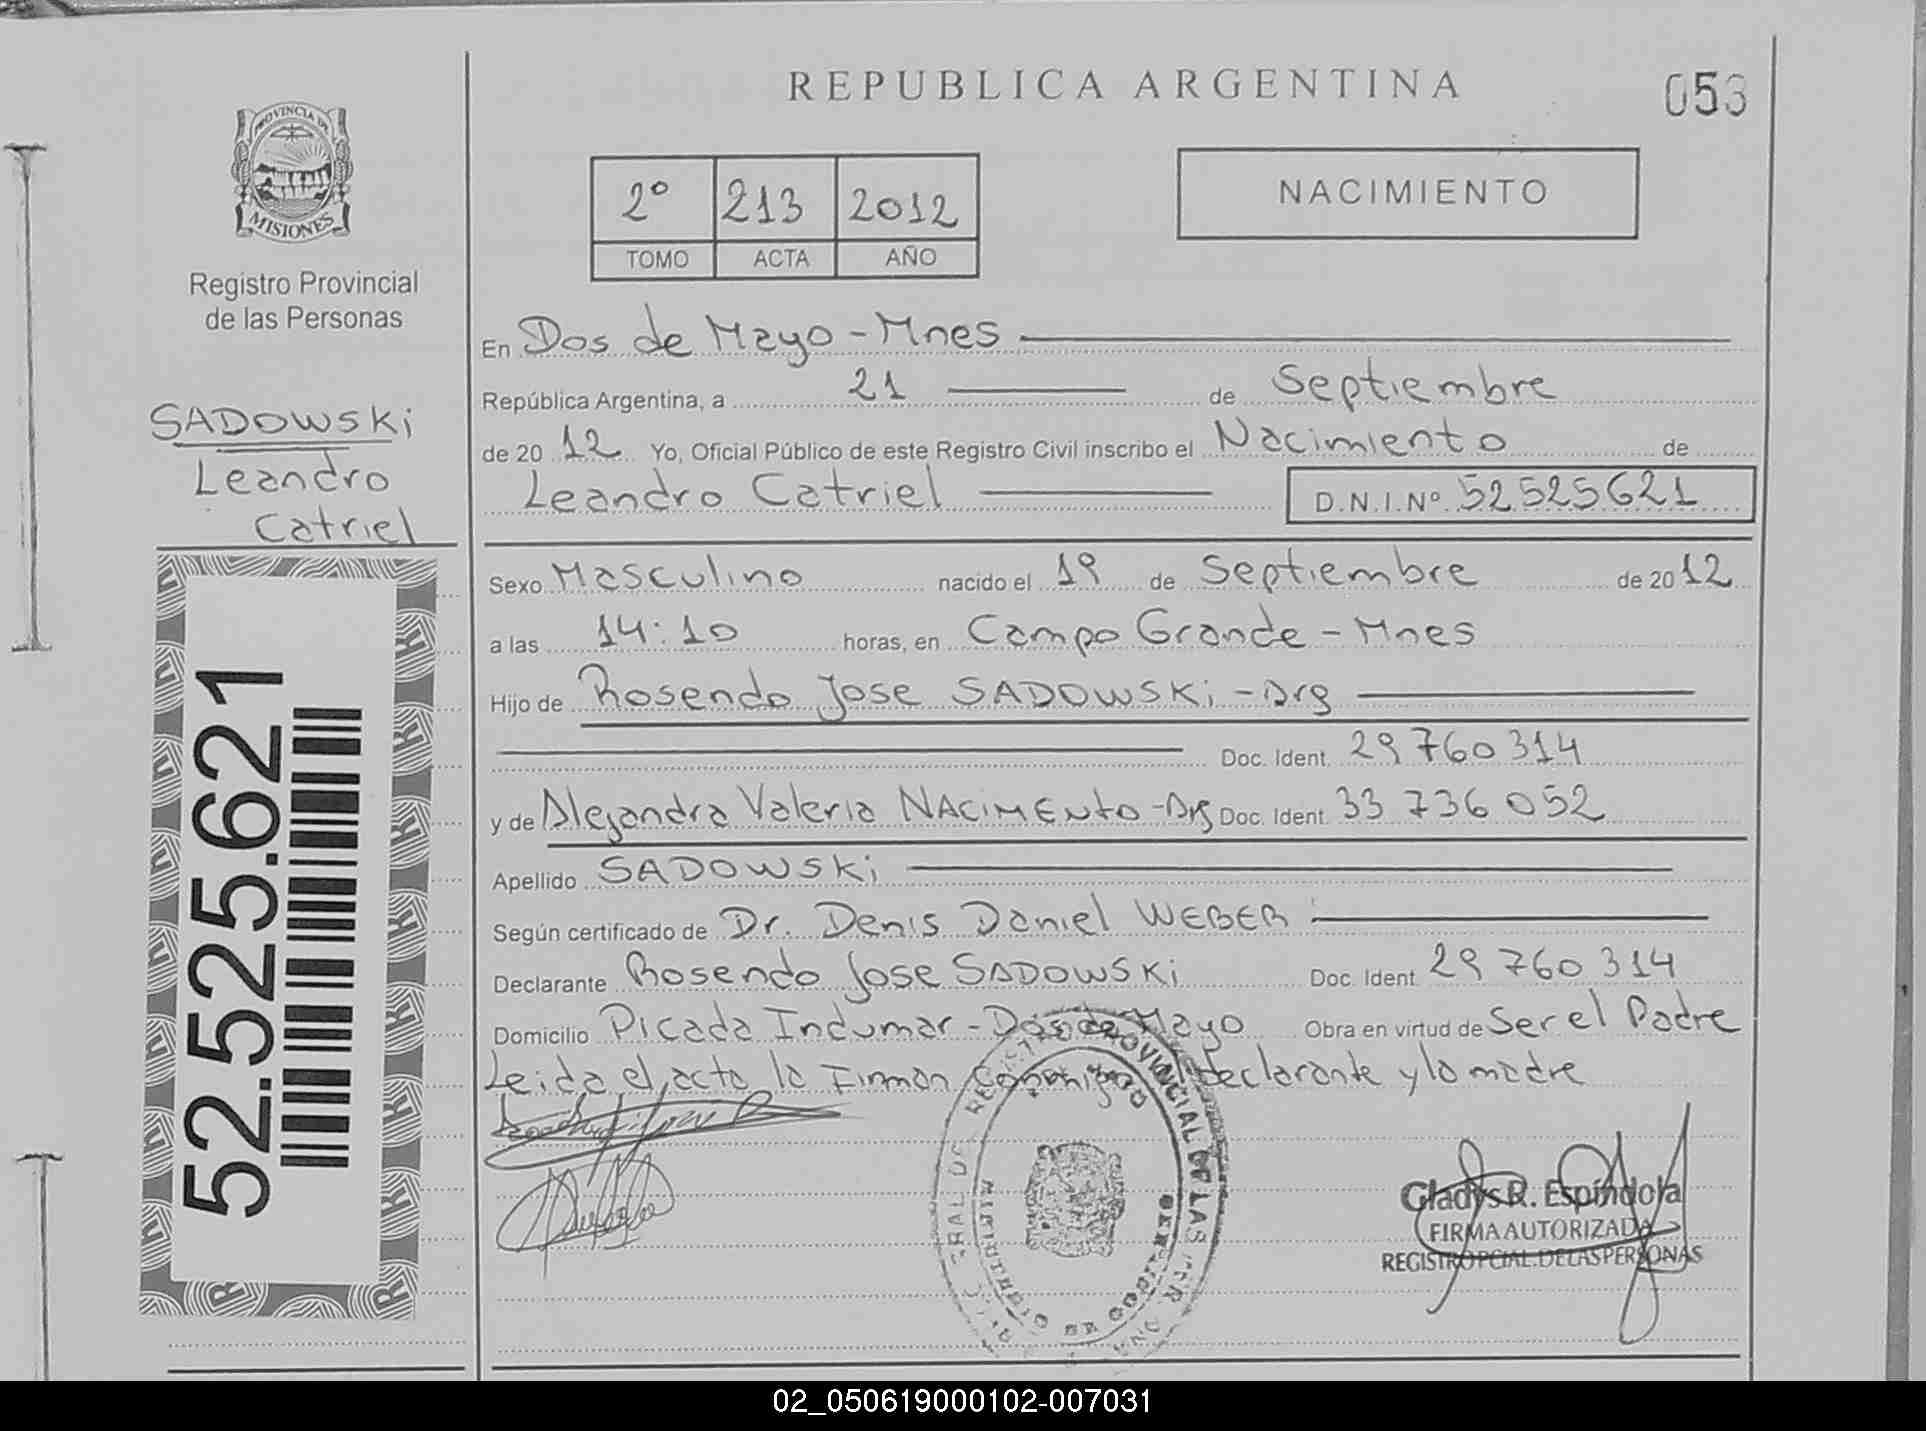 REPUBLICA ARGENTINA
053
PROVINCIA DE
MISIONES
Registro Provincial
de las Personas
2º 213 2012
TOMO ACTA AÑO
NACIMIENTO
SADOWSKi
Leandro
Catriel
52.525.621
En Dos de Mayo - Mnes
República Argentina, a 21 de Septiembre
de 2012 Yo, Oficial Público de este Registro Civil inscribo el Nacimiento de
Leandro Catriel D.N.I.Nº 52525621
Sexo Masculino nacido el 19 de Septiembre de 2012
a las 14:10 horas, en Campo Grande - Mnes
Hijo de Rosendo Jose SADOWSKi - Arg
Doc. Ident. 29 760 314
y de Alejandra Valeria NACIMENto - Arg Doc. Ident. 33 736 052
Apellido SADOWSKi
Según certificado de Dr. Denis Daniel WEBER
Declarante Rosendo Jose SADOWSKi Doc. Ident. 29 760 314
Domicilio Picada Indumar - Dos de Mayo Obra en virtud de Ser el Padre
Leida el acta la Firman Conmigo el declarante y la madre
REGISTRO PROVINCIAL DE LAS
Gladys R. Espíndola
FIRMA AUTORIZADA
REGISTRO PCIAL. DE LAS PERSONAS
02_050619000102-007031